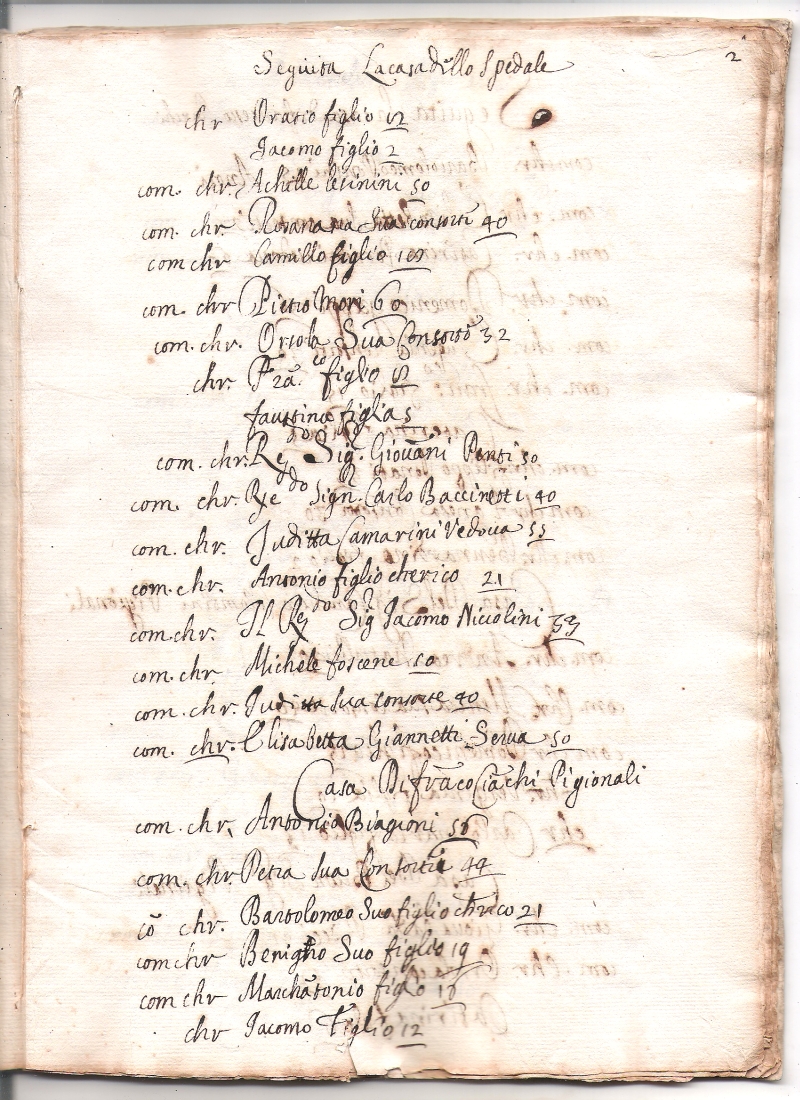 2
Seguita La casa dello Spedale
chr Oratio figlio 12
Jacomo figlio 2
com. chr. Achille 50
com. chr. Sua consorte 40
com chr Camillo figlio
com. chr Pietro Mori 60
com. chr. Orsola Sua Consorte 32
chr. Fra.co figlio
faustina figlia 5
com. chr. Re.do Sig.r Giovani Ponti 50
com. chr. Re.do Sign.r Carlo Baccinetti 40
com. chr. Juditta Camarini Vedova 55
com. chr. Antonio figlio cherico 21
com. chr. Il Re.do Sig.r Jacomo Niccolini 33
com. chr. Michele foscene 50
com. chr. Juditta sua consorte 40
com. chr. Elisabetta Giannetti Serva 50
Casa Di frãco Ciãchi Pigionali
com. chr. Antonio Biagioni 56
com. chr. Petra sua Consorte 44
cō chr. Bartolomeo Suo figlio chrico 21
com chr Benigno Suo figlio 19
com chr Marchãtonio figlio
chr Jacomo Figlio 12